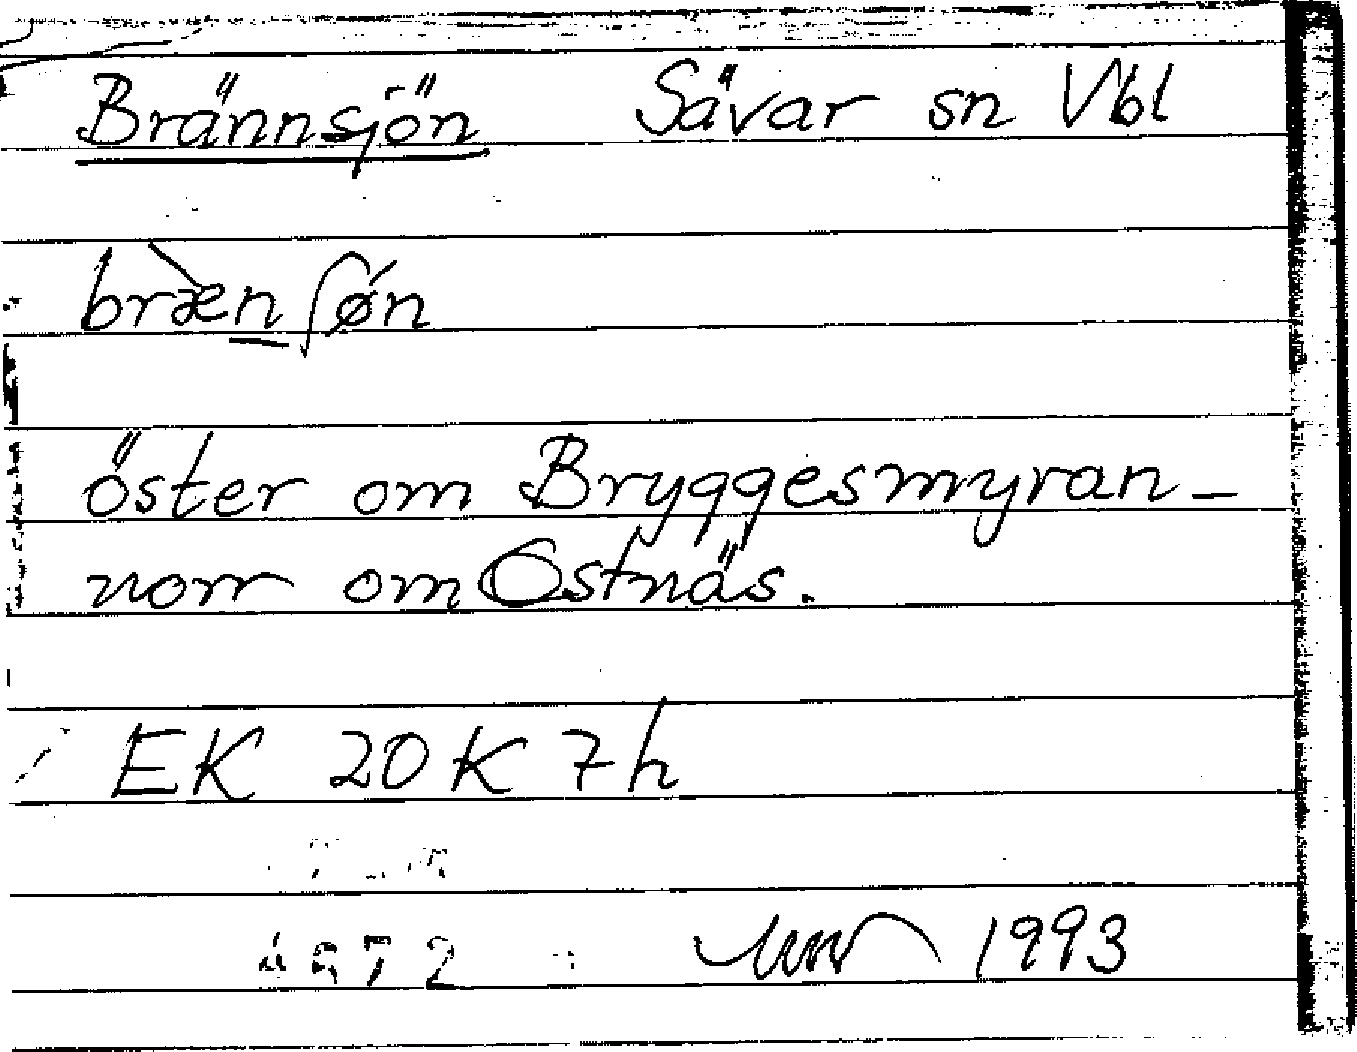 Brännsjön Sävar sn Vbl
bræ̀nʃøn
öster om Bryggesmyran -
norr om Ostnäs.
EK 20K 7h
1993